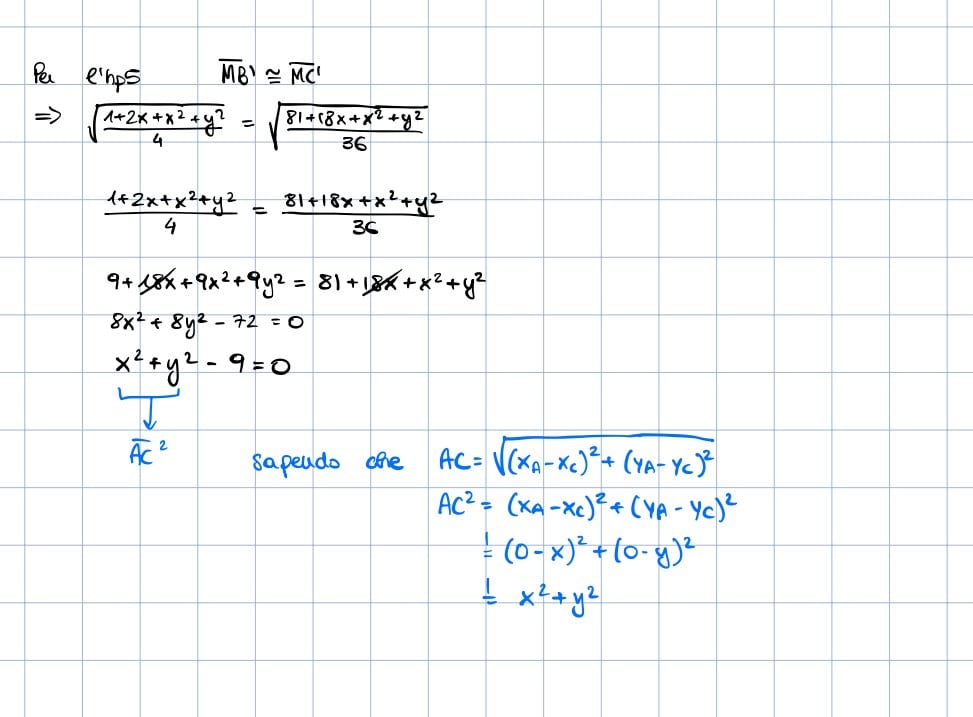 Per l'hp5 M̅B̅' ≅ M̅C̅'
=> √((1+2x+x²+y²)/4) = √((81+18x+x²+y²)/36)
(1+2x+x²+y²)/4 = (81+18x+x²+y²)/36
9+18x+9x²+9y² = 81+18x+x²+y²
8x²+8y²-72=0
x²+y²-9=0
A̅C̅²
sapendo che AC=√((x_A-x_C)²+(y_A-y_C)²)
AC²= (x_A-x_C)²+(y_A-y_C)²
= (0-x)²+(0-y)²
= x²+y²